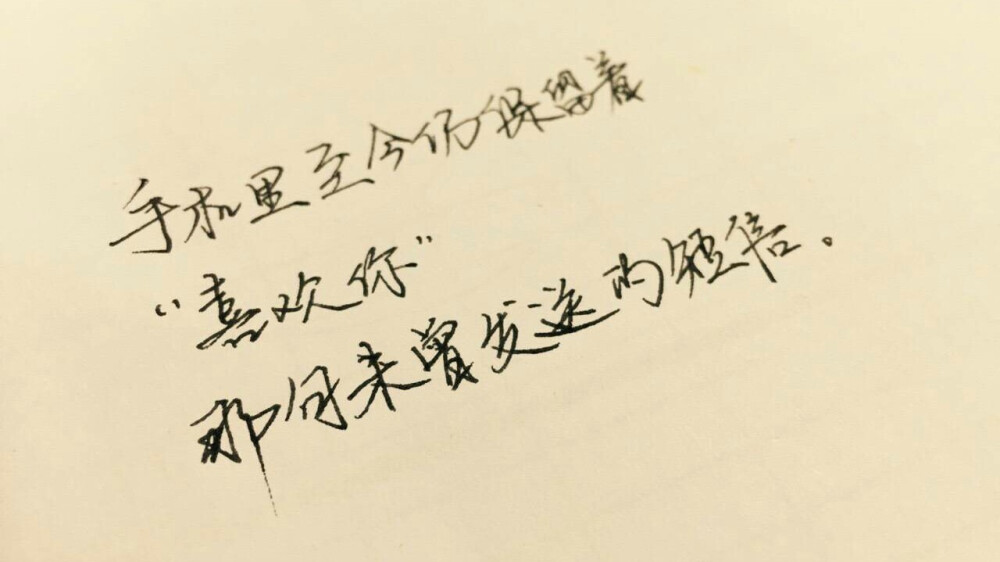 手机里至今仍保留着
“喜欢你”
那句未曾发送的短信。